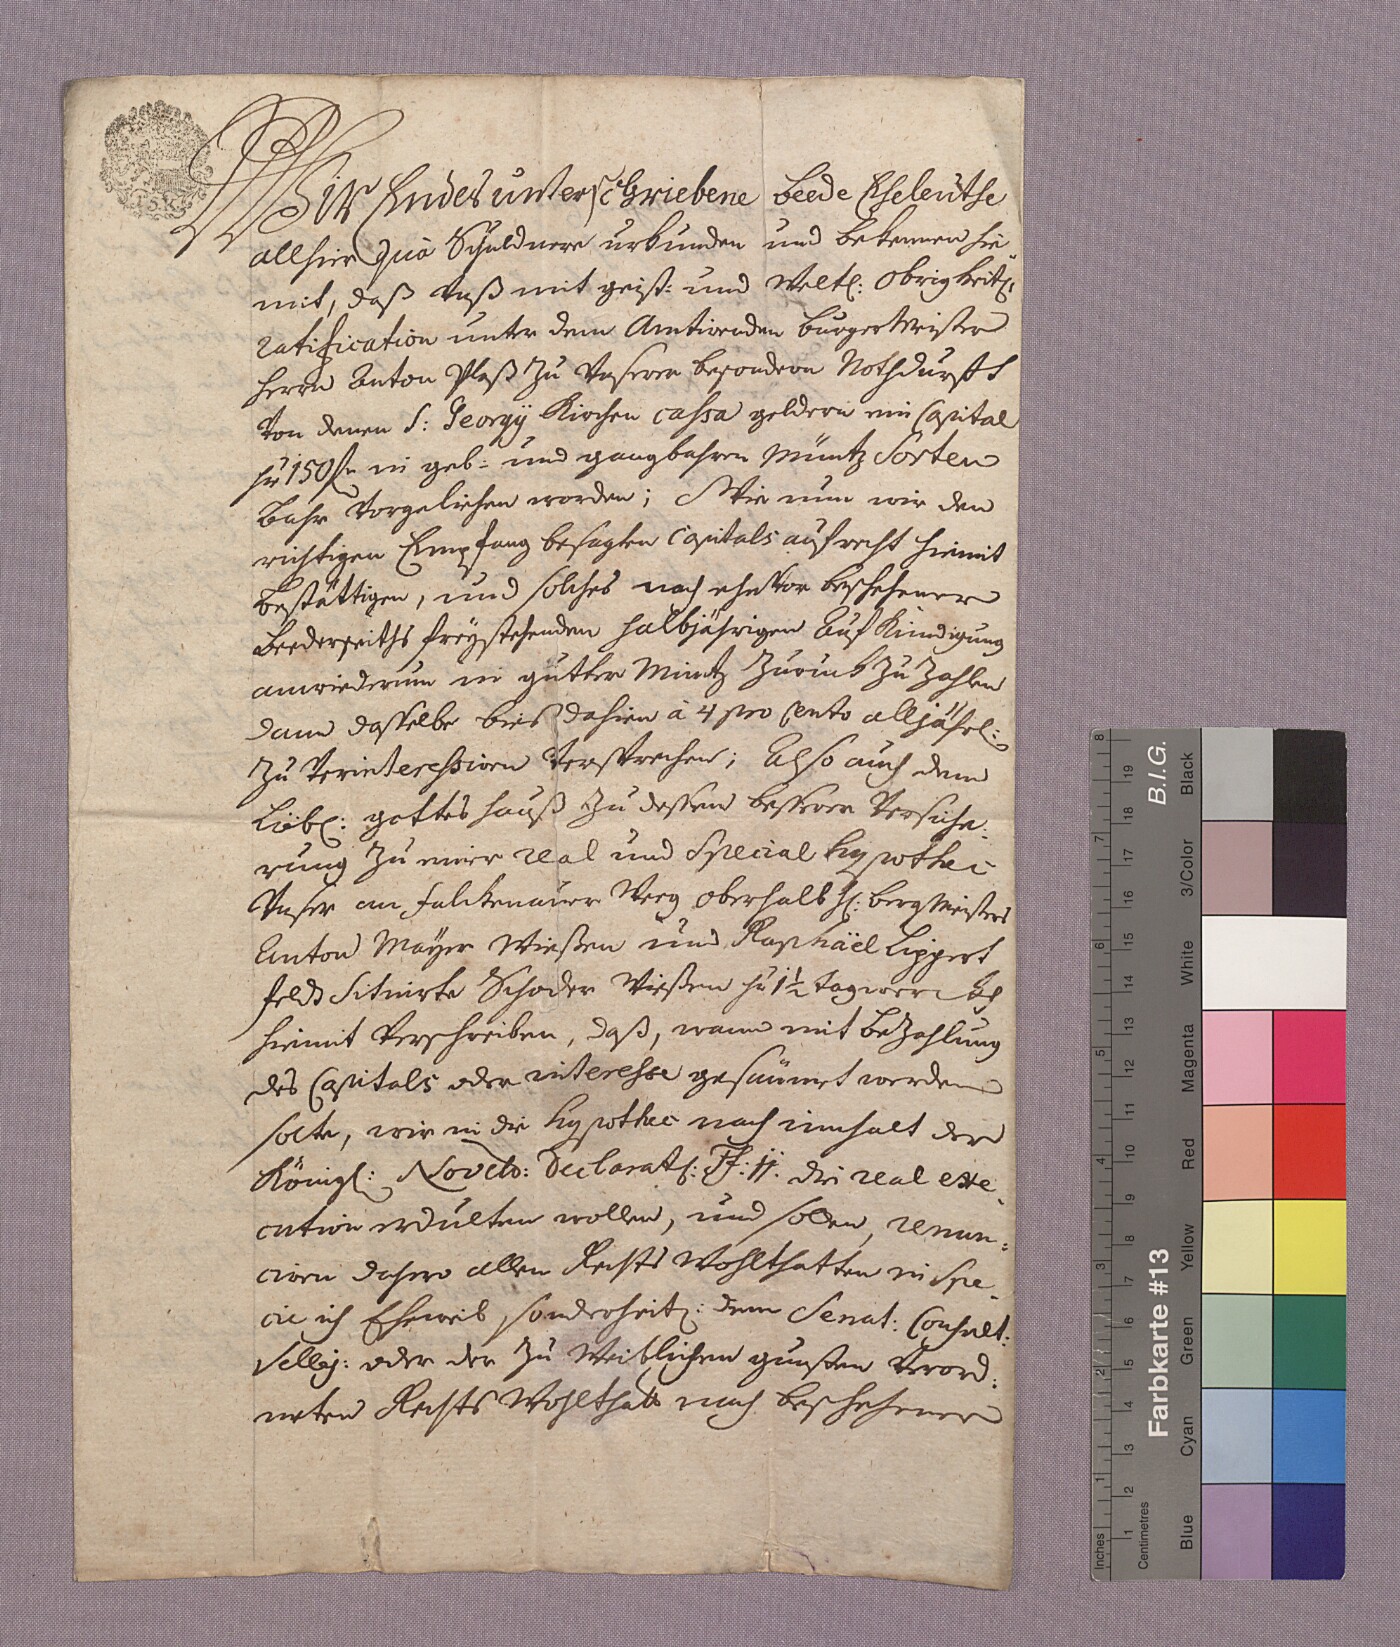 Wir Endes unterschriebene beede Eheleuthe
allhier quà Schuldnere urkunden und bekennen hie
mit, daß Unß mit geist: und Weltl: Obrigkeitl:
ratification unter dem Amtirenden Burgermeister
Herrn Anton Ploß zu Unserer besondern Nothdurfft
Von denen S: Georgÿ Kirchen cassa geldern ein Capital
pr 150 fl in geb- und gangbahren Müntz Sorten
Bahr Vorgeliehen worden; Wie nun wir den
richtigen Empfang besagten Capitals aufrecht hiemit
bestättigen, und solches nach ehevor beschehener
Beederseiths freÿstehenden halbjährigen Aufkündigung
anwiederum in gutter Müntz zuruck zu zahlen
dann dasselbe bies dahien à 4 pro Cento alljährl:
zu Verinteressiren Versprechen; Also auch dem
Löbl: gotteshauß zu dessen besserer Versiche-
rung zu einer real und Special hypothec
Unser am falckenauer Weeg oberhalb H: bergMeisters
Anton Mayer Wießen und Raphäel Lippert
feld Situirte Schoder Wießen pr 1½ tagwerc
hiemit Verschreiben, daß, wann mit Bezahlung
des Capitals oder interesse gesäumet werden
solte, wir in die hypothec nach innhalt der
Königl: Novell: Declarat: Ff: jj. die real exe-
cution erdulten wollen, und sollen, renun-
ciren dahero allen Rechts Wohlthatten in Spe-
cie ich Eheweib sonderheitl: dem Senat: Consult:
Vellej: oder der zu Weiblichen gunsten Verord-
neten Rechts Wohlthatt nach beschehener
8 7 6 5 4 3 2 1 Inches
19 18 17 16 15 14 13 12 11 10 9 8 7 6 5 4 3 2 1 Centimetres
Farbkarte #13
B.I.G.
Blue Cyan Green Yellow Red Magenta White 3/Color Black